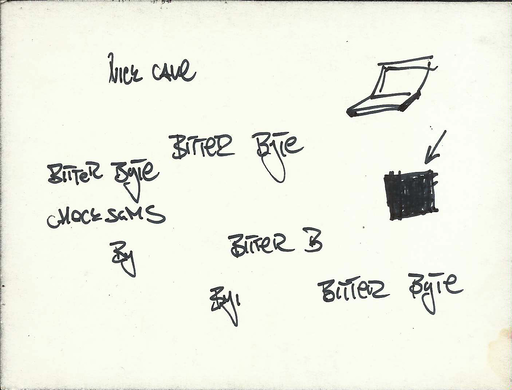 NICK CAVE
BITTER BYTE
BITTER BYTE
CHOCKSUMS
By
BITTER B
By
BITTER BYTE